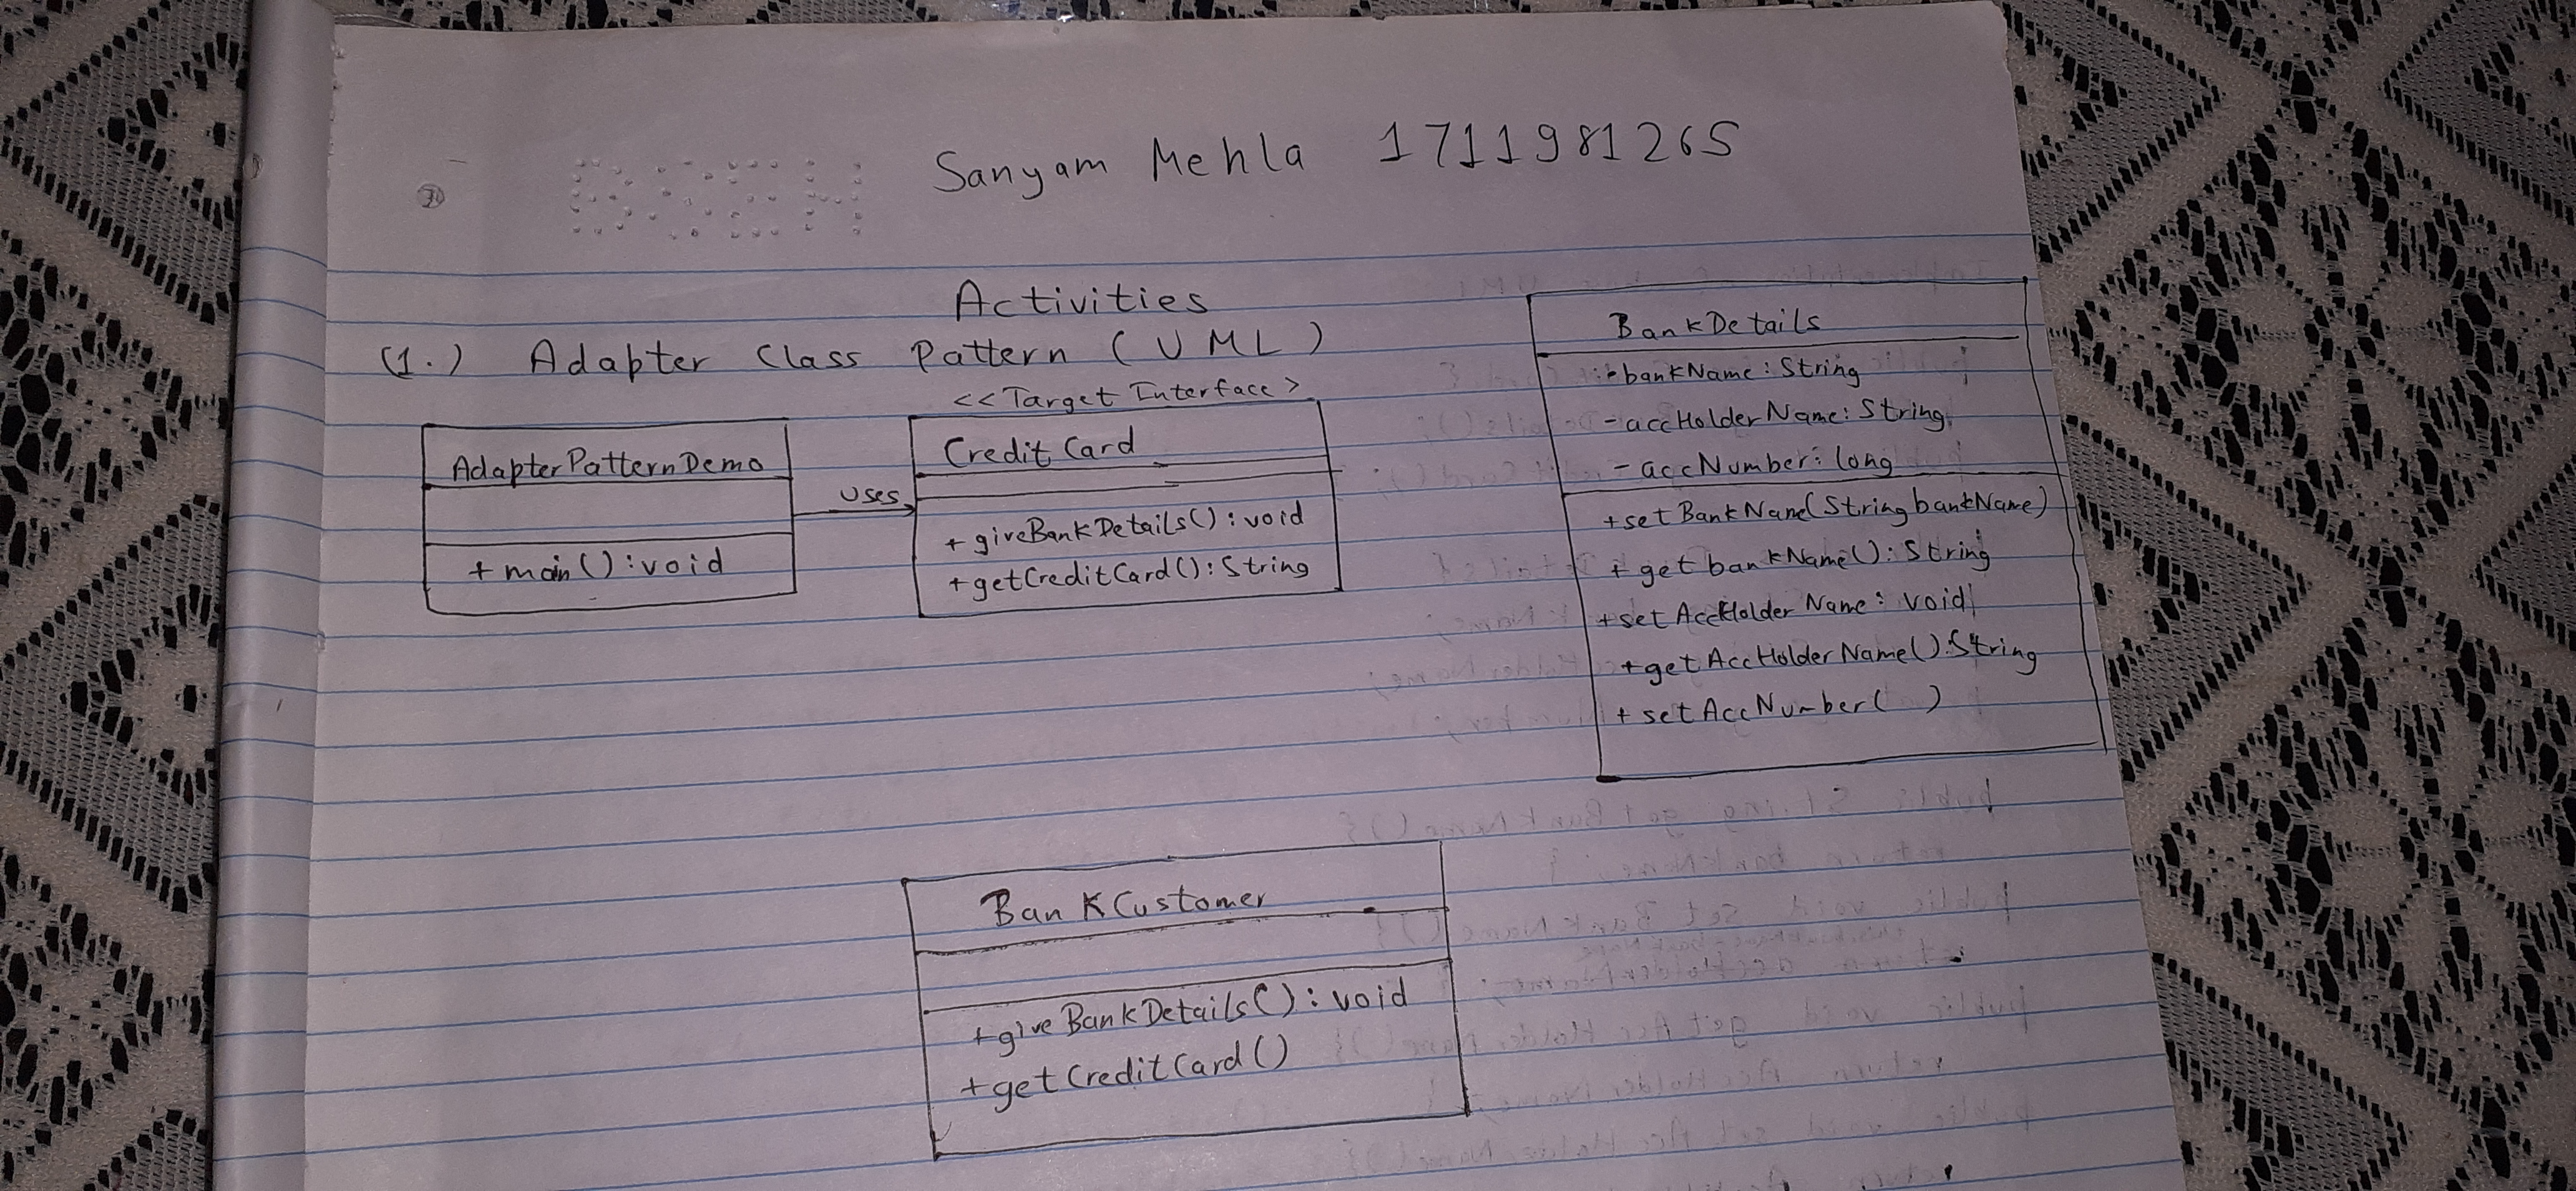 Sanyam Mehla 1711981265
Activities
(1.) Adapter Class Pattern (UML)
AdapterPatternDemo
+ main() : void
uses
<< Target Interface >
Credit Card
+ giveBankDetails() : void
+ getCreditCard() : String
BankDetails
- bankName : String
- accHolderName : String
- accNumber : long
+ setBankName(String bankName)
+ getbankName() : String
+ setAccHolderName : void
+ getAccHolderName() : String
+ setAccNumber( )
BankCustomer
+ giveBankDetails() : void
+ getCreditCard()